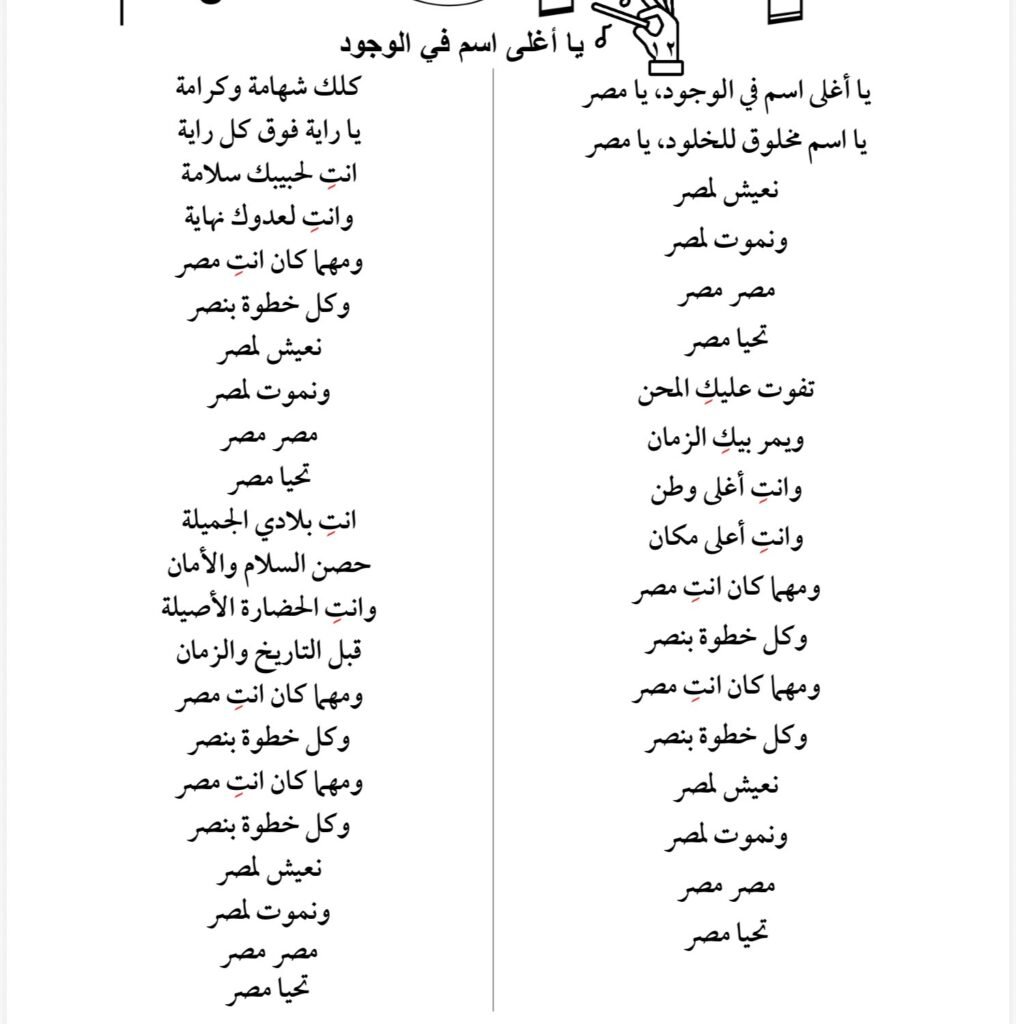 يا أغلى اسم في الوجود
١٢
يا أغلى اسم في الوجود، يا مصر
يا اسم مخلوق للخلود، يا مصر
نعيش لمصر
ونموت لمصر
مصر مصر
تحيا مصر
تفوت عليكِ المحن
ويمر بيكِ الزمان
وانتِ أغلى وطن
وانتِ أعلى مكان
ومهما كان انتِ مصر
وكل خطوة بنصر
ومهما كان انتِ مصر
وكل خطوة بنصر
نعيش لمصر
ونموت لمصر
مصر مصر
تحيا مصر
كلك شهامة وكرامة
يا راية فوق كل راية
انتِ لحبيبك سلامة
وانتِ لعدوك نهاية
ومهما كان انتِ مصر
وكل خطوة بنصر
نعيش لمصر
ونموت لمصر
مصر مصر
تحيا مصر
انتِ بلادي الجميلة
حصن السلام والأمان
وانتِ الحضارة الأصيلة
قبل التاريخ والزمان
ومهما كان انتِ مصر
وكل خطوة بنصر
ومهما كان انتِ مصر
وكل خطوة بنصر
نعيش لمصر
ونموت لمصر
مصر مصر
تحيا مصر